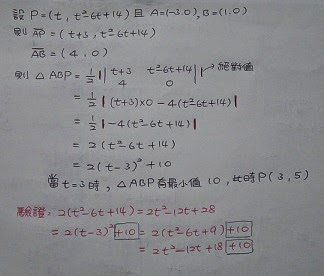 設 P=(t, t²-6t+14) 且 A=(-3,0), B=(1,0)
則 AP=(t+3, t²-6t+14)
AB=(4, 0)
則 △ABP = 1/2 || t+3 t²-6t+14 || →絕對值
4 0
= 1/2 |(t+3)×0 - 4(t²-6t+14)|
= 1/2 |-4(t²-6t+14)|
= 2(t²-6t+14)
= 2(t-3)²+10
當 t=3 時, △ABP 有最小值 10, 此時 P(3, 5)
驗證: 2(t²-6t+14) = 2t²-12t+28
= 2(t-3)²+10 = 2(t²-6t+9)+10
= 2t²-12t+18+10